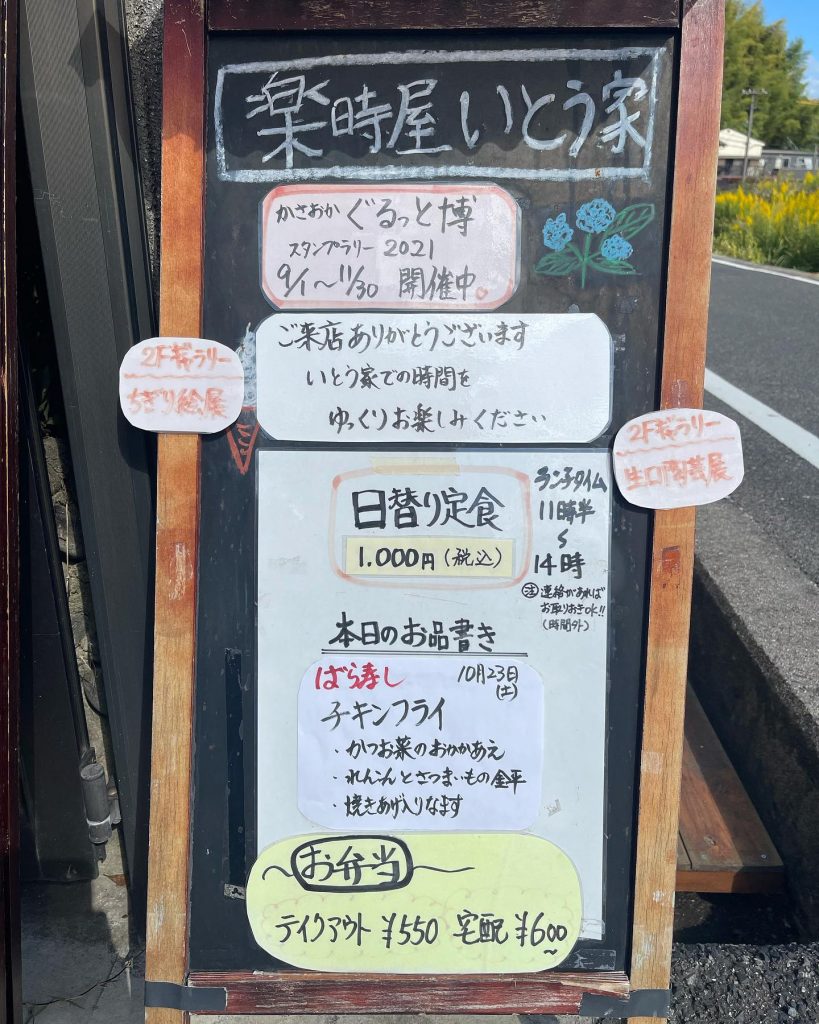 楽時屋 いとう家
かさおか ぐるっと博
スタンプラリー 2021
9/1～11/30 開催中。
ご来店ありがとうございます
いとう家での時間を
ゆっくりお楽しみください
2Fギャラリー
ちぎり絵展
2Fギャラリー
生口陶芸展
日替り定食
1.000円（税込）
ランチタイム
11時半
～
14時
注 連絡があれば
お取りおきOK!!
（時間外）
本日のお品書き
ばら寿し 10月23日
（土）
チキンフライ
・かつお菜のおかかあえ
・れんこんとさつまいもの金平
・焼きあげ入りなます
～お弁当～
テイクアウト ¥550 宅配 ¥600～